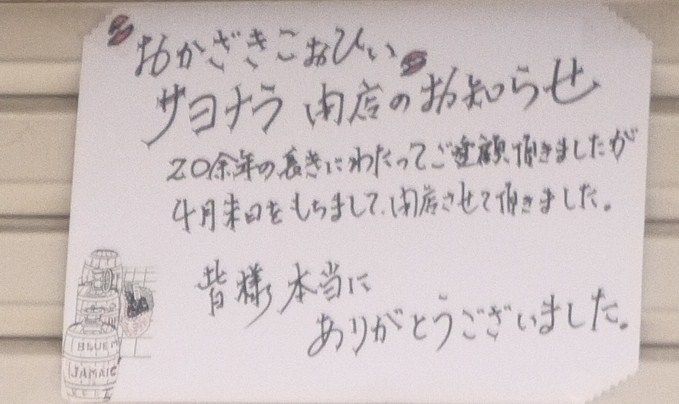 おかざきこおひい
サヨナラ 閉店のお知らせ
20余年の長きにわたってご愛顧頂きましたが
4月末日をもちまして、閉店させて頂きました。
皆様 本当に
ありがとうございました。
BLUE M
JAMAIC